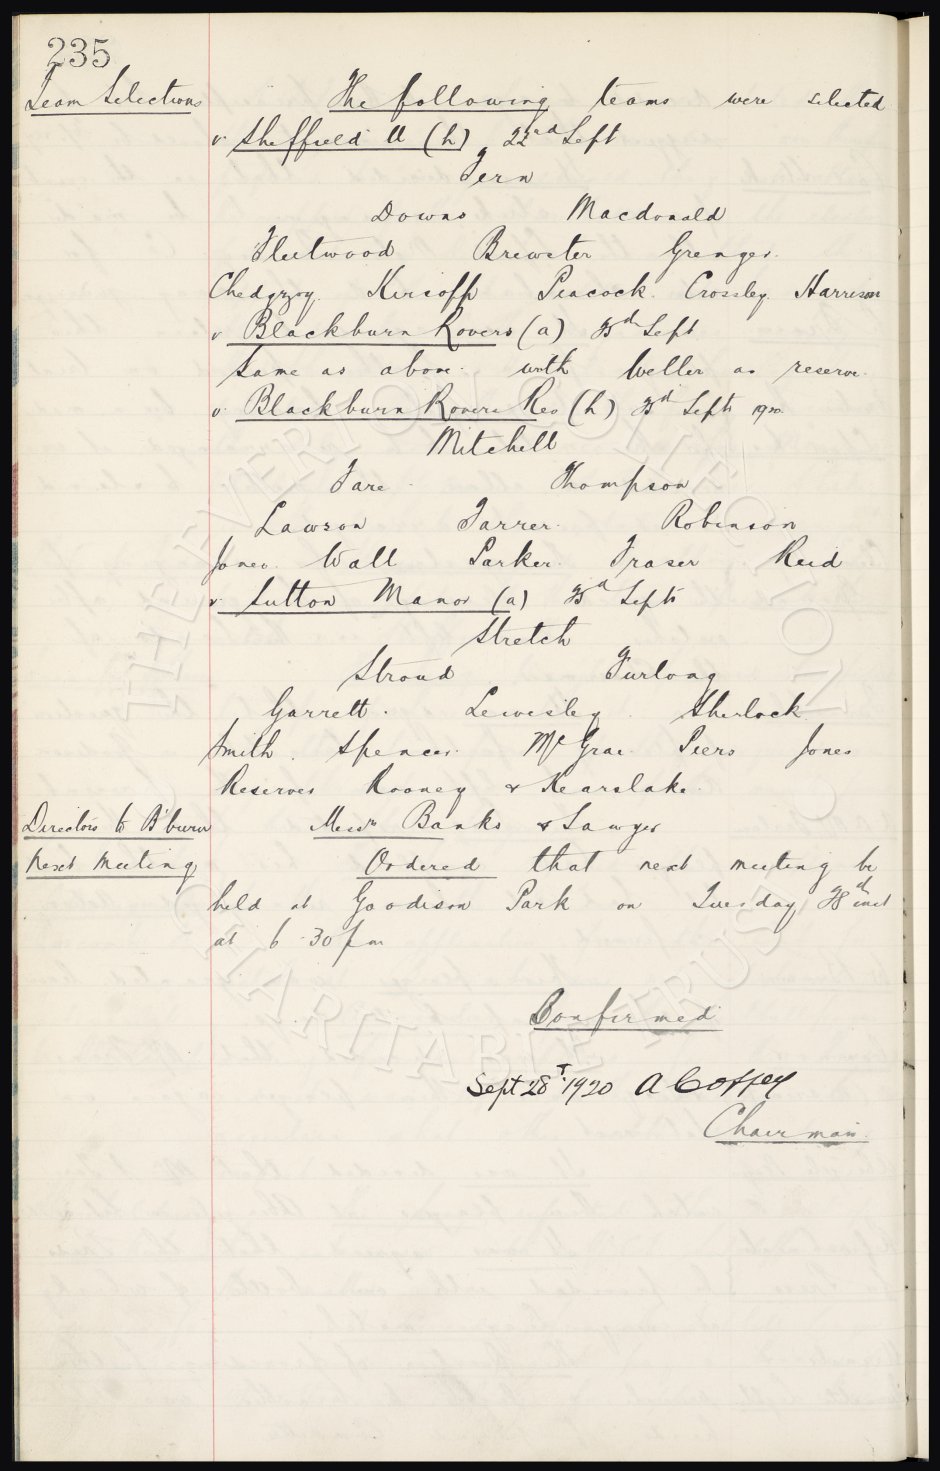 235
Team Selections The following teams were selected
v Sheffield U (h) 22nd Sept
Fern
Downs Macdonald
Fleetwood Brewster Grenyer.
Chedgzoy. Kirsopp Peacock. Crossley. Harrison
v Blackburn Rovers (a) 25th Sept
Same as above. with Weller as reserve.
v. Blackburn Rovers Res (h) 25th Sept 1920.
Mitchell
Fare. Thompson
Lawson Farrer. Robinson
Jones. Wall Parker. Fraser Reid
v. Sutton Manor (a) 25th Sept
Stretch
Stroud Furlong
Garrett. Lewesley. Sherlock
Smith. Spencer. McGrae. Piers Jones
Reserves Rooney & Kearslake.
Directors to B'burn Messrs Banks & Sawyer
Next Meeting Ordered that next meeting be
held at Goodison Park on Tuesday 28th inst
at 6.30 pm
Confirmed
Sept 28th 1920 A Coffey
Chairman.
THE EVERTON COLLECTION
CHARITABLE TRUST